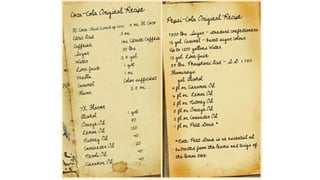 Coca-Cola Original Recipe
Citric Acid 3 oz
Caffeine 1oz Citrate Caffeine
Sugar 30 lbs
Water 2.5 gal
Lime Juice 1 qt
Vanilla 1 oz
Caramel Color sufficient
Flavor 2.5 oz
7X Flavor
Alcohol 1 qt
Orange Oil 80
Lemon Oil 120
Nutmeg Oil 40
Coriander Oil 20
Neroli Oil 40
Cinnamon Oil 40
Pepsi-Cola Original Recipe
7500 lbs Sugar - standard confectioners
12 gal Caramel - burnt sugar colour
Up to 1200 gallons Water
12 gal Lime Juice
58 lbs Phosphoric Acid - S.G. 1.750
gal alcohol
6 fl oz Lemon Oil
5 fl oz Orange Oil
4 fl oz Cinnamon Oil
2 fl oz Nutmeg Oil
2 fl oz Coriander Oil
1 fl oz Petit Grain *
*Note: Petit Grain is an essential oil
extracted from the leaves and twigs of
the lemon tree.